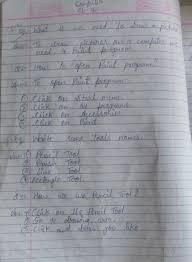 Computer
Ch-7
Que What is we need to draw a picture
Ans To draw pictures on a computer we
need a Paint program.
Que How to open Paint program.
Ans To open Paint program.
① Click on Start menu.
② Click on All programs
③ Click on Accessories
④ Click on Paint
Que Write some tools names.
Ans ① Pencil Tool
② Brush Tool
③ Line Tool
④ Rectangle Tool.
Que How we use Pencil Tool?
Ans ① Click on the Pencil Tool.
② Go to drawing area.
③ Click and draw you like